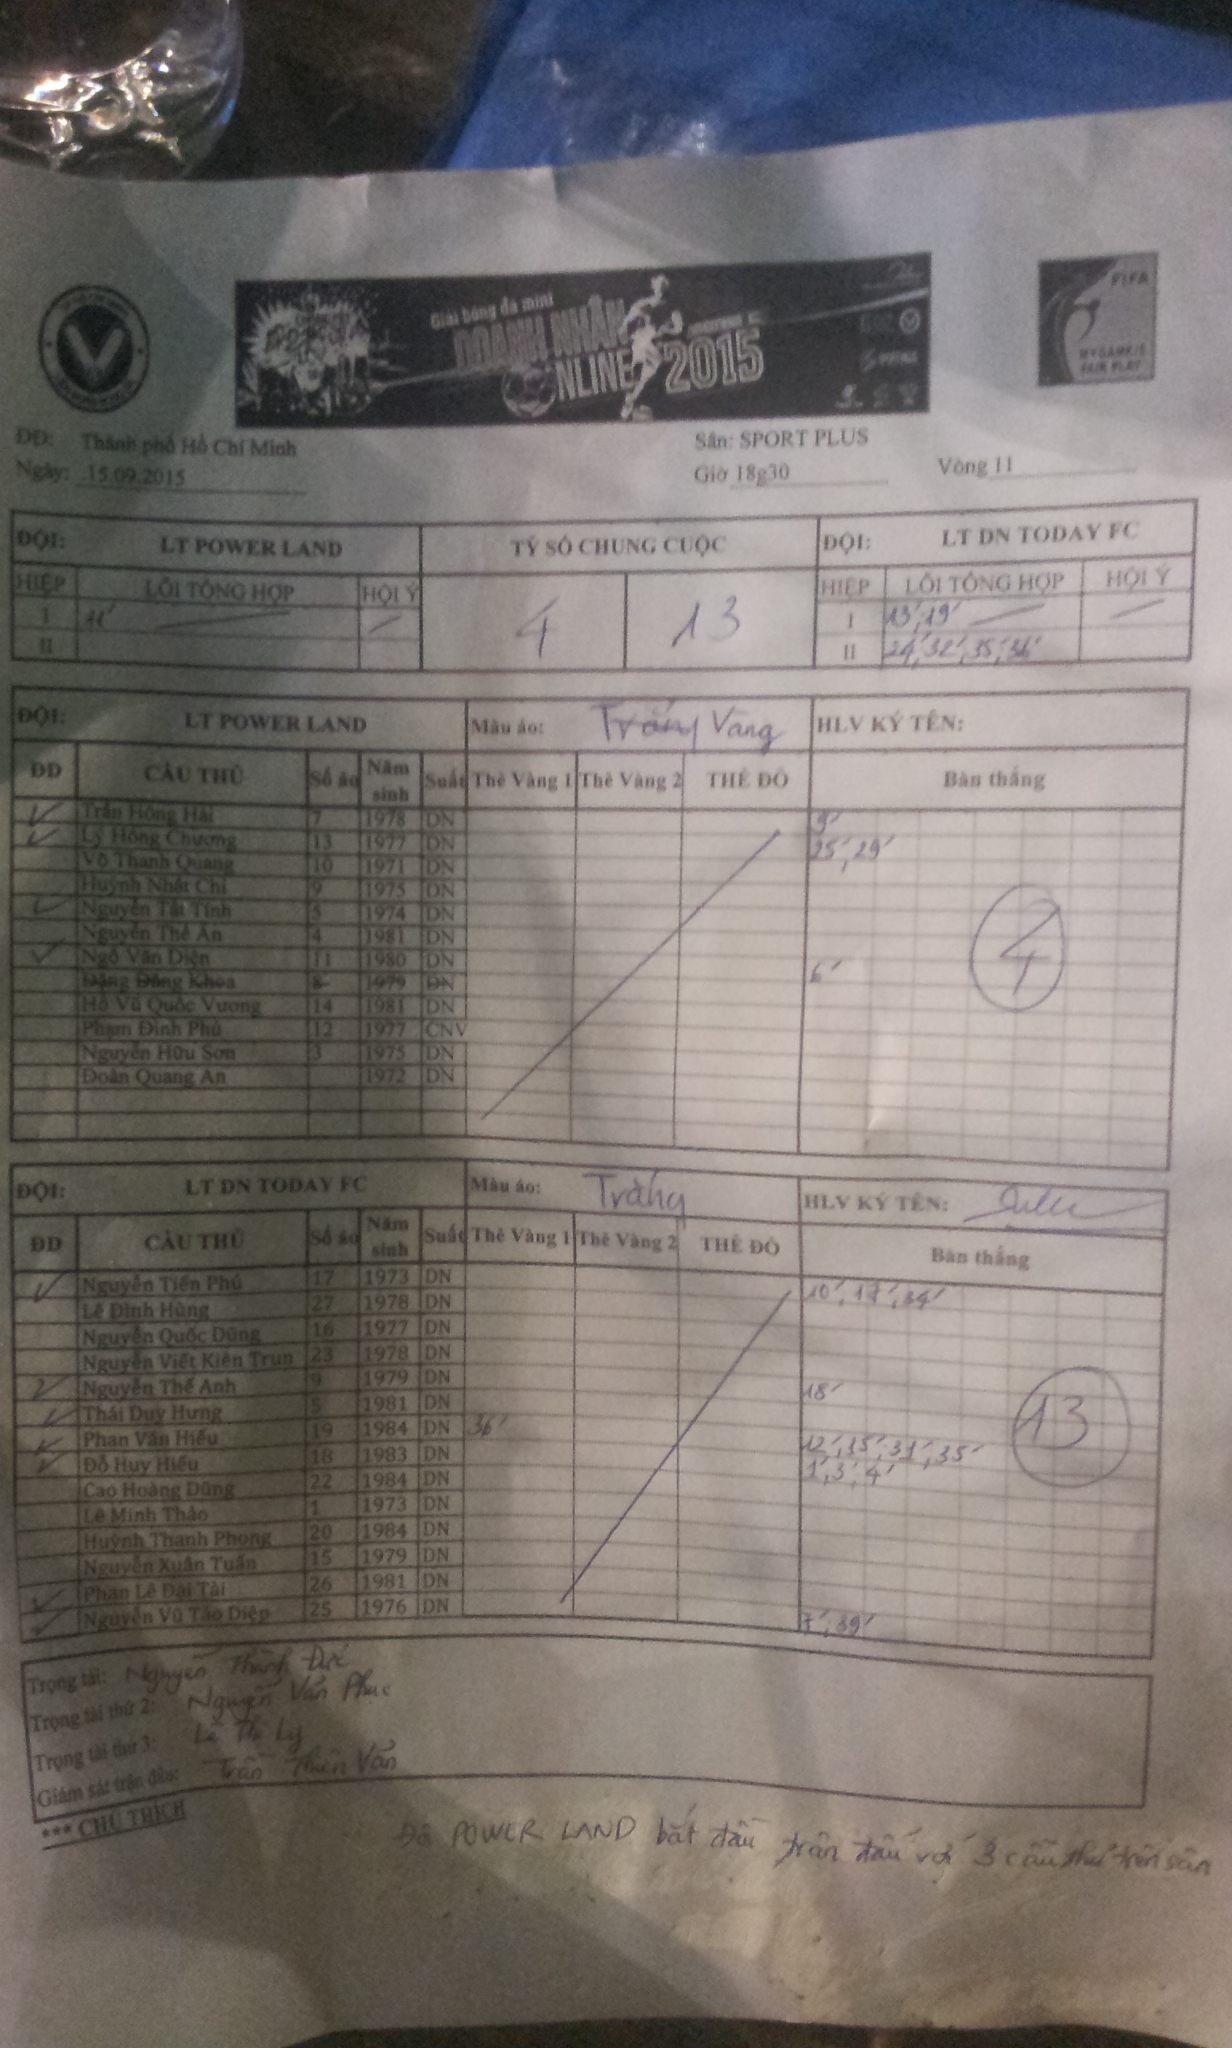 Giải bóng đá mini
DOANH NHÂN
NLINE 2015
FIFA
MY GAME IS
FAIR PLAY
ĐĐ: Thành phố Hồ Chí Minh Sân: SPORT PLUS
Ngày: 15.09.2015 Giờ 18g30 Vòng 11
ĐỘI: LT POWER LAND TỶ SỐ CHUNG CUỘC ĐỘI: LT DN TODAY FC
HIỆP LỖI TỔNG HỢP HỘI Ý 4 13 HIỆP LỖI TỔNG HỢP HỘI Ý
I 11' I 13', 19'
II II 24', 32', 35', 36'
ĐỘI: LT POWER LAND Màu áo: Trắng Vàng HLV KÝ TÊN:
ĐD CẦU THỦ Số áo Năm sinh Suất Thẻ Vàng 1 Thẻ Vàng 2 THẺ ĐỎ Bàn thắng
Trần Hồng Hải 7 1978 DN 9'
Lý Hồng Chương 13 1977 DN 25', 29'
Võ Thanh Quang 10 1971 DN
Huỳnh Nhất Chi 9 1975 DN
Nguyễn Tất Tính 5 1974 DN
Nguyễn Thế An 4 1981 DN
Ngô Văn Diện 11 1980 DN 6'
Đặng Đăng Khoa 8 1979 DN
Hồ Vũ Quốc Vương 14 1981 DN
Phạm Đình Phú 12 1977 CNV
Nguyễn Hữu Sơn 3 1975 DN
Đoàn Quang An 1972 DN
4
ĐỘI: LT DN TODAY FC Màu áo: Trắng HLV KÝ TÊN:
ĐD CẦU THỦ Số áo Năm sinh Suất Thẻ Vàng 1 Thẻ Vàng 2 THẺ ĐỎ Bàn thắng
Nguyễn Tiến Phú 17 1973 DN 10', 17', 34'
Lê Đình Hùng 27 1978 DN
Nguyễn Quốc Dũng 16 1977 DN
Nguyễn Viết Kiên Trun 23 1978 DN
Nguyễn Thế Anh 9 1979 DN 18'
Thái Duy Hưng 5 1981 DN
Phan Văn Hiếu 19 1984 DN 36' 12', 15', 31', 35'
Đỗ Huy Hiếu 18 1983 DN 1', 3', 4'
Cao Hoàng Dũng 22 1984 DN
Lê Minh Thảo 1 1973 DN
Huỳnh Thanh Phong 20 1984 DN
Nguyễn Xuân Tuấn 15 1979 DN
Phan Lê Đại Tài 26 1981 DN
Nguyễn Vũ Tảo Diệp 25 1976 DN 7', 39'
13
Trọng tài: Nguyễn Thành Đức
Trọng tài thứ 2: Nguyễn Văn Phúc
Trọng tài thứ 3: Lê Thị Ly
Giám sát trận đấu: Trần Thiên Vấn
*** CHÚ THÍCH
Đội POWER LAND bắt đầu trận đấu với 3 cầu thủ trên sân